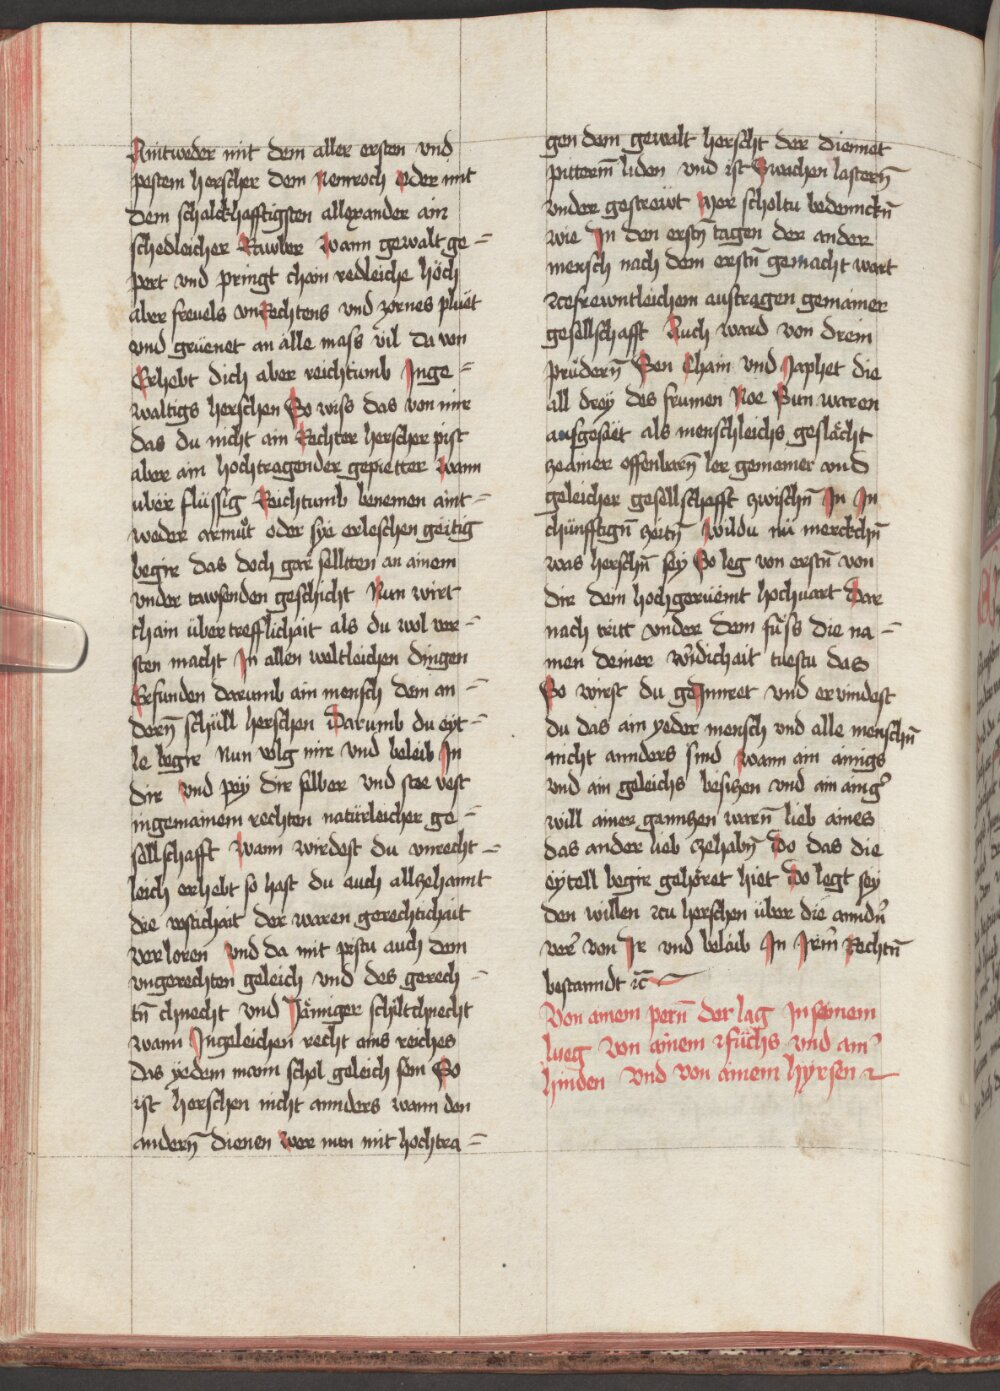 Aintweder mit dem aller ersten vnd
pestem herscher dem Nemroch Oder mit
dem schalckhafftigsten allexander ain
schedleicher Rawber Wann gewalt ge=
pert vnd pringt chain redleiche höch
aber freuels vnRechtens vnd zornes plüet
vnd grüenet an alle mass vil Da von
Erhebt dich aber reichtumb Inge=
waltigs herschen So wiss das von mir
das du nicht ain Rechter herscher pist
aber ain hochtragender gepietter Wann
vber flüssig Reichtumb benemen aint=
weder armüt oder sye erleschen geitig
begir das doch gar sellten an ainem
vnder tawsenden geschicht Nun wirt
chain übertrefflichait als du wol ver=
sten macht In allen weltleichen dingen
Gefunden darumb ain mensch dem an=
dern̄ schüll herschen Darumb du eyt=
le begir Nun volg mir vnd beleib In
dir vnd pey dir selber vnd stee vest
ingemainem rechten natürleicher ge=
sellschafft Wann wirdest du vnrecht=
leich erhebt so hast du auch allzehannt
die vestichait der waren gerechtichait
verloren vnd da mit pistu auch dem
vngerechten geleich vnd des gerech=
tn̄ chnecht vnd Jämiger schiltchnecht
wann Ingeleichen recht ains reiches
Das yedem mann schol geleich sein So
ist herschen nicht annders wann den
andern̄ dienen Wer nun mit hochtra=
gen dem gewalt herscht der diennet
pitterm̄ liden vnd ist Swachen lastern̄
vnder gestrewt Mer scholtu bedennckn̄
wie In den erstn̄ tagen der ander
mensch nach dem erstn̄ gemacht wart
zcefrewntleichem austragen gemainer
gesellschafft Auch ward von drein
prüdern̄ Sen Cham vnd Japhet die
all drey des frumen Noe Sun waren
ausgesäet als menschleichs geslächt
zeainer offenbarn̄ ler gemainer vnd
geleicher gesellschafft zwischn̄ In In
chünfftign̄ zeitn̄ Wildu nü merckchn̄
was herschn̄ sey So leg von erstn̄ von
dir dem hochgerüemt hochuart Dar
nach tritt vnder dem füss die na=
men deiner wirdichait tuestu das
So wirst du geInnret vnd ervindest
du das ain yeder mensch vnd alle menschn̄
nicht annders sind Wann ain ainigs
vnd ain geleichs besitzen vnd ain ainig̉
will ainer ganntzen warn̄ lieb aines
das ander lieb zehabn̄ Do das die
eytell begir gehöret hiet Do legt sey
den willen zcu herschen über die anndn̉
ver̉ von Ir vnd belaib In Irm̄ Rechtn̄
bestanndt ꝛc̄
Von ainem pern̄ der lag In seinem
lueg Von ainem zfüchs vnd ain̉
hinden Vnd von ainem hyrsen ꝛ